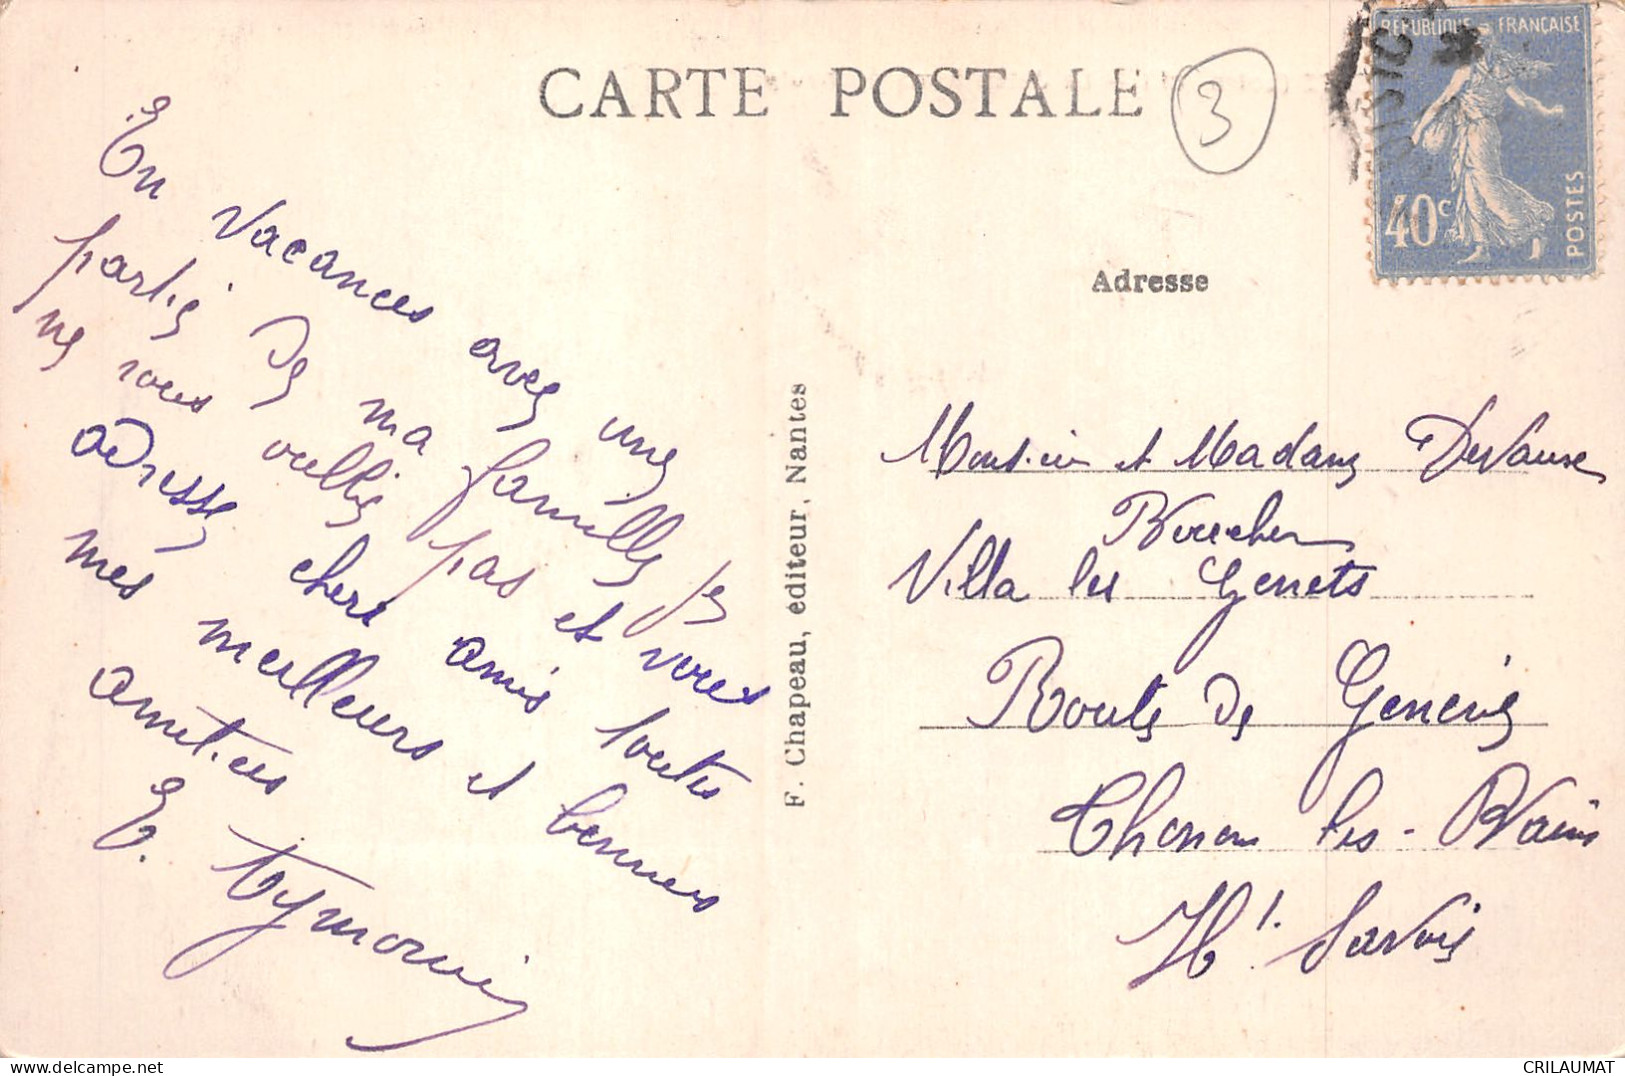 CARTE POSTALE
3
REPUBLIQUE FRANÇAISE
40c
POSTES
Adresse
En vacances avec une
partie de ma famille je
ne vous oublie pas et vous
adresse chers amis toutes
mes meilleurs et bonnes
amitiés
E.
F. Chapeau, éditeur, Nantes
Monsieur et Madame
Villa les Genets
Route de Genève
Thonon les-Bains
Hte. Savoie
CRILAUMAT